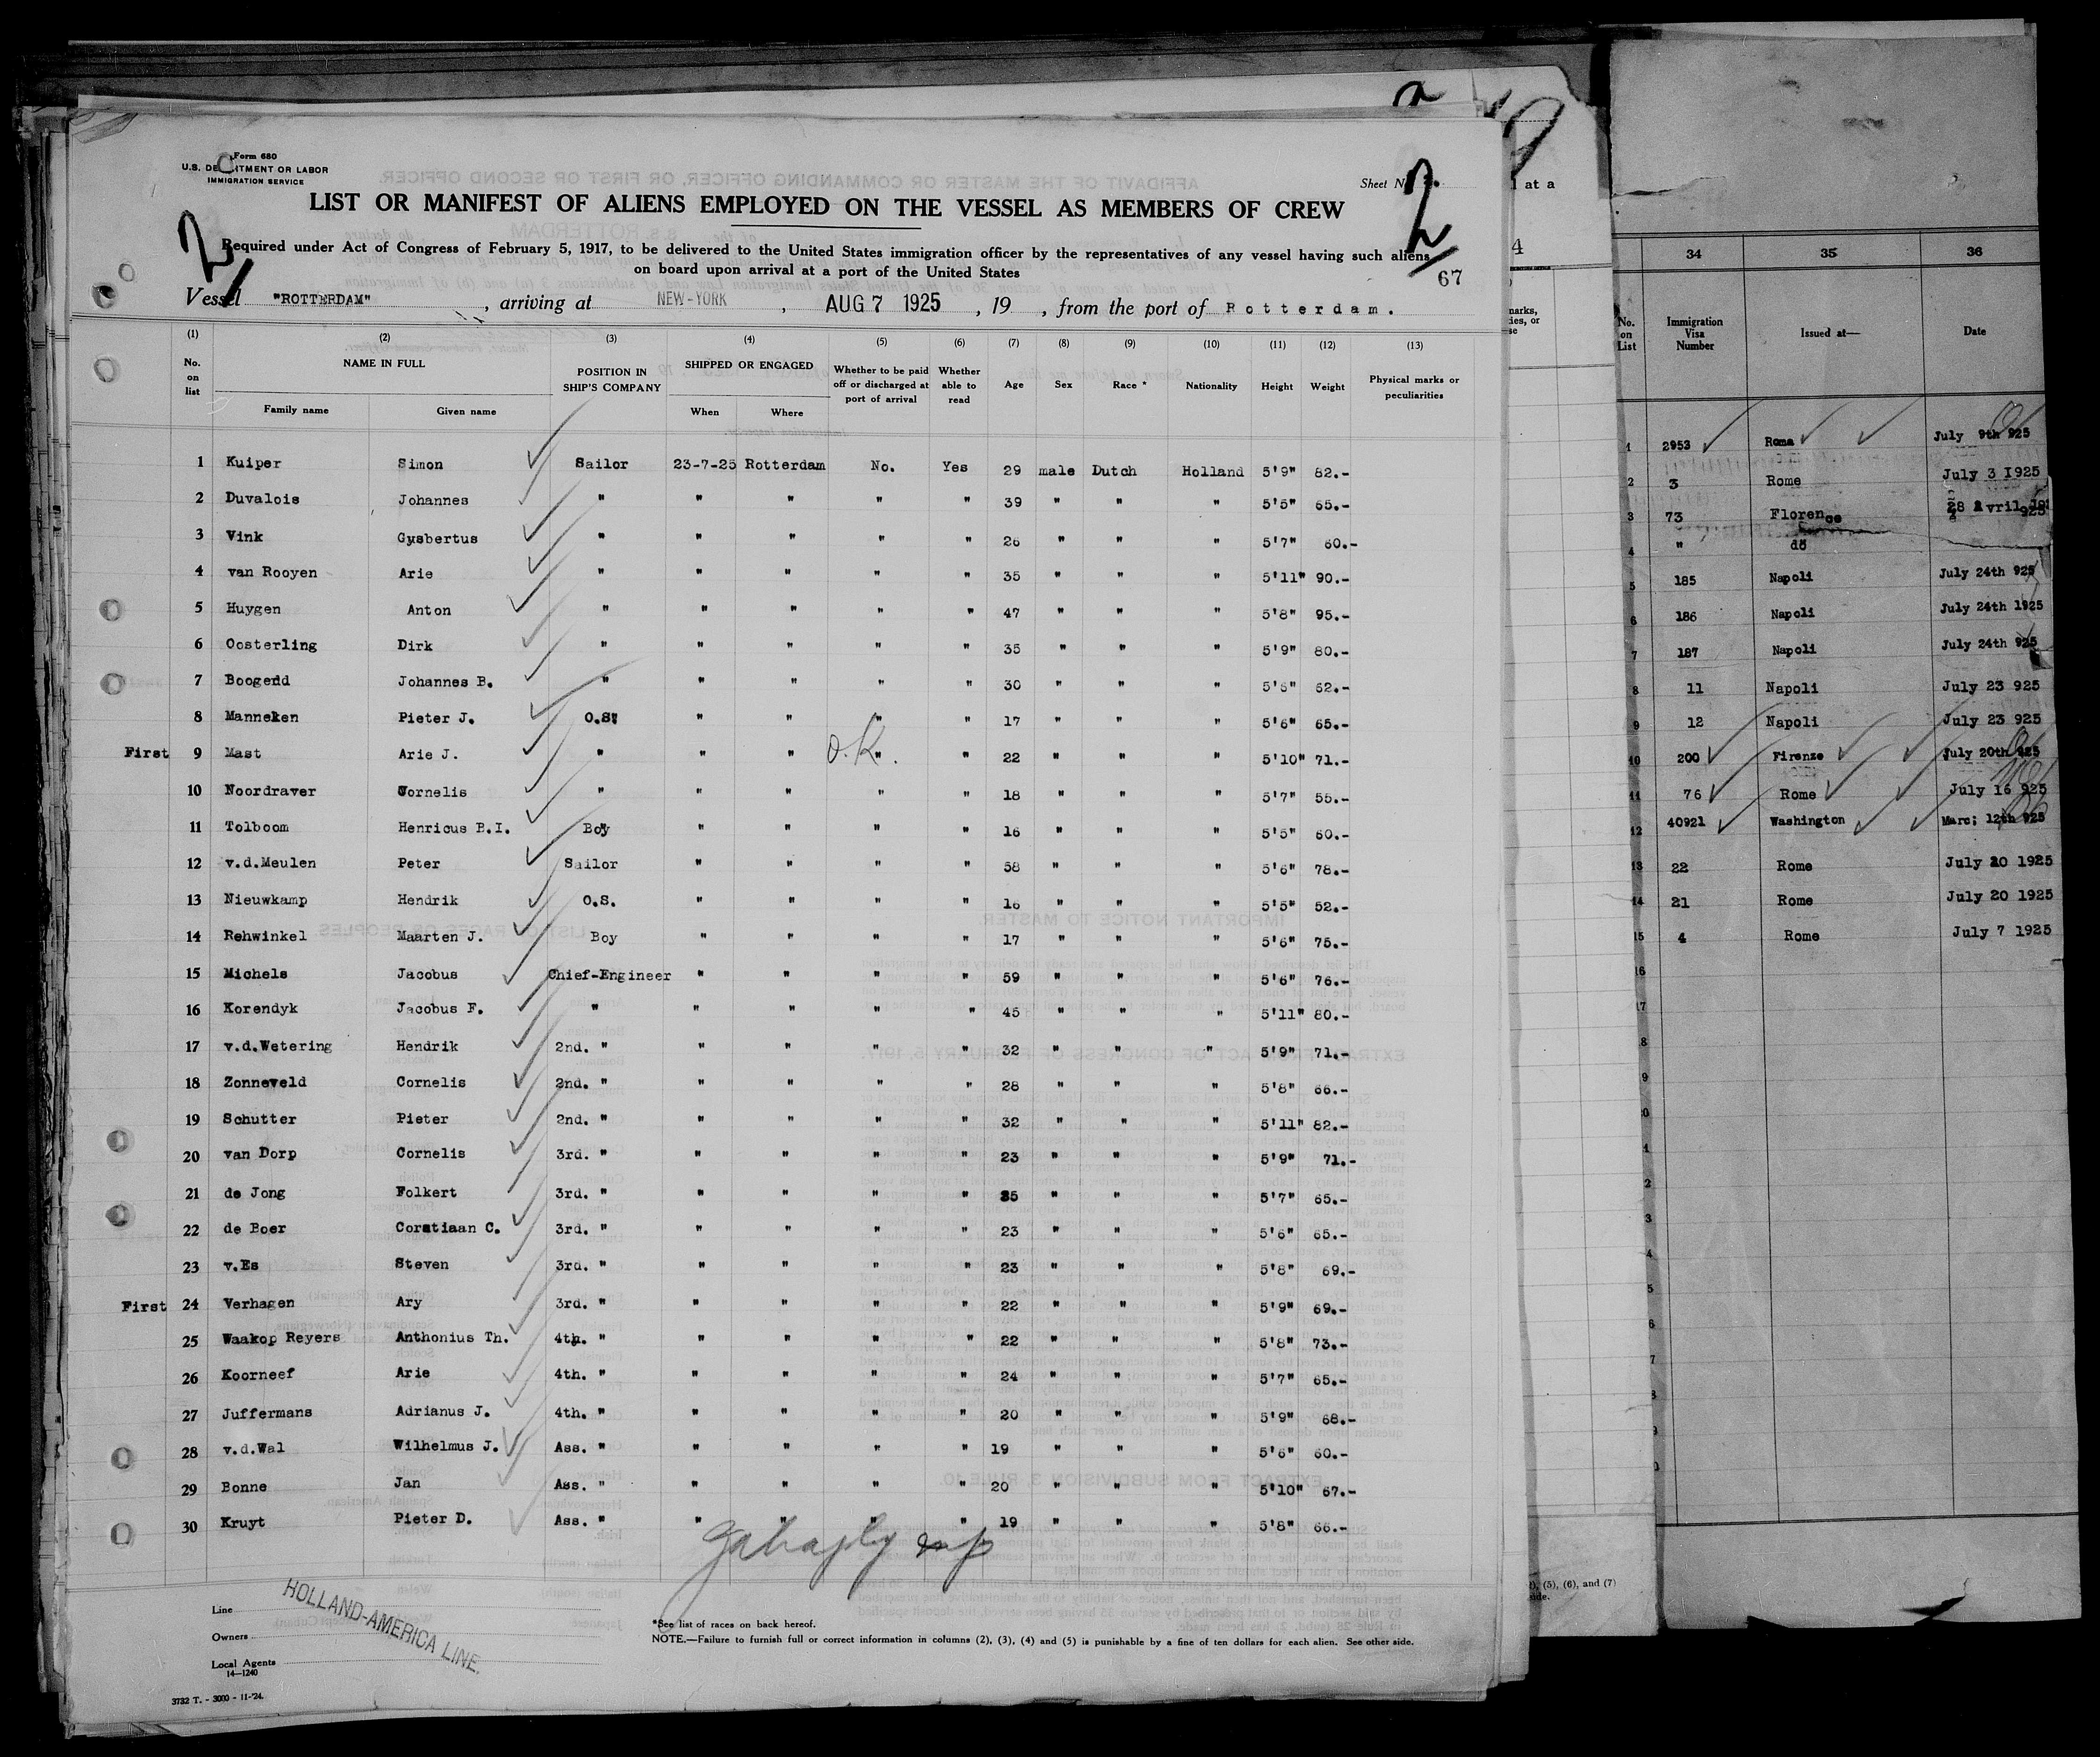 Form 680
U.S. DEPARTMENT OR LABOR
IMMIGRATION SERVICE
Sheet No. 2
LIST OR MANIFEST OF ALIENS EMPLOYED ON THE VESSEL AS MEMBERS OF CREW
2
Required under Act of Congress of February 5, 1917, to be delivered to the United States immigration officer by the representatives of any vessel having such aliens
on board upon arrival at a port of the United States
67
Vessel "ROTTERDAM", arriving at NEW-YORK, AUG 7 1925, 19 , from the port of Rotterdam.
(1) (2) (3) (4) (5) (6) (7) (8) (9) (10) (11) (12) (13)
No. on list NAME IN FULL Family name Given name POSITION IN SHIP'S COMPANY SHIPPED OR ENGAGED When Where Whether to be paid off or discharged at port of arrival Whether able to read Age Sex Race * Nationality Height Weight Physical marks or peculiarities
1 Kuiper Simon Sailor 23-7-25 Rotterdam No. Yes 29 male Dutch Holland 5'9" 82.-
2 Duvalois Johannes " " " " " 39 " " " 5'5" 65.-
3 Vink Gysbertus " " " " " 26 " " " 5'7" 60.-
4 van Rooyen Arie " " " " " 35 " " " 5'11" 90.-
5 Huygen Anton " " " " " 47 " " " 5'8" 95.-
6 Oosterling Dirk " " " " " 35 " " " 5'9" 80.-
7 Boogerd Johannes B. " " " " " 30 " " " 5'6" 62.-
8 Manneken Pieter J. O.S. " " " " 17 " " " 5'6" 65.-
First 9 Mast Arie J. " " " O.K. " " 22 " " " 5'10" 71.-
10 Noordraver Cornelis " " " " " 18 " " " 5'7" 55.-
11 Tolboom Henricus B.I. Boy " " " " 16 " " " 5'5" 60.-
12 v.d.Meulen Peter Sailor " " " " 58 " " " 5'6" 78.-
13 Nieuwkamp Hendrik O.S. " " " " 16 " " " 5'5" 52.-
14 Rehwinkel Maarten J. Boy " " " " 17 " " " 5'6" 75.-
15 Michels Jacobus Chief-Engineer " " " " 59 " " " 5'6" 76.-
16 Korendyk Jacobus F. " " " " " 45 " " " 5'11" 80.-
17 v.d.Wetering Hendrik 2nd. " " " " " 32 " " " 5'9" 71.-
18 Zonneveld Cornelis 2nd. " " " " " 28 " " " 5'8" 66.-
19 Schutter Pieter 2nd. " " " " " 32 " " " 5'11" 82.-
20 van Dorp Cornelis 3rd. " " " " " 23 " " " 5'9" 71.-
21 de Jong Folkert 3rd. " " " " " 35 " " " 5'7" 65.-
22 de Boer Corstiaan C. 3rd. " " " " " 23 " " " 5'6" 65.-
23 v.Es Steven 3rd. " " " " " 23 " " " 5'8" 69.-
First 24 Verhagen Ary 3rd. " " " " " 22 " " " 5'9" 69.-
25 Waakop Reyers Anthonius Th. 4th. " " " " " 22 " " " 5'8" 73.-
26 Koorneef Arie 4th. " " " " " 24 " " " 5'7" 65.-
27 Juffermans Adrianus J. 4th. " " " " " 20 " " " 5'9" 68.-
28 v.d.Wal Wilhelmus J. Ass. " " " " " 19 " " " 5'6" 60.-
29 Bonne Jan Ass. " " " " " 20 " " " 5'10" 67.-
30 Kruyt Pieter D. Ass. " " " " " 19 " " " 5'8" 66.-
Line
Owners
Local Agents
HOLLAND-AMERICA LINE.
14—1240
3732 T. - 3000 - 11-'24.
*See list of races on back hereof.
NOTE.—Failure to furnish full or correct information in columns (2), (3), (4) and (5) is punishable by a fine of ten dollars for each alien. See other side.
at a
4
(5), (6), and (7)
34 35 36
No. on List Immigration Visa Number Issued at— Date
1 2953 Rome July 9th 925
2 3 Rome July 3 1925
3 73 Florence 28 Avril 925
4 " dö
5 185 Napoli July 24th 925
6 186 Napoli July 24th 1925
7 187 Napoli July 24th 925
8 11 Napoli July 23 925
9 12 Napoli July 23 925
10 200 Firenze July 20th 925
11 76 Rome July 16 925
12 40921 Washington Marc; 12th 925
13 22 Rome July 20 1925
14 21 Rome July 20 1925
15 4 Rome July 7 1925
16
17